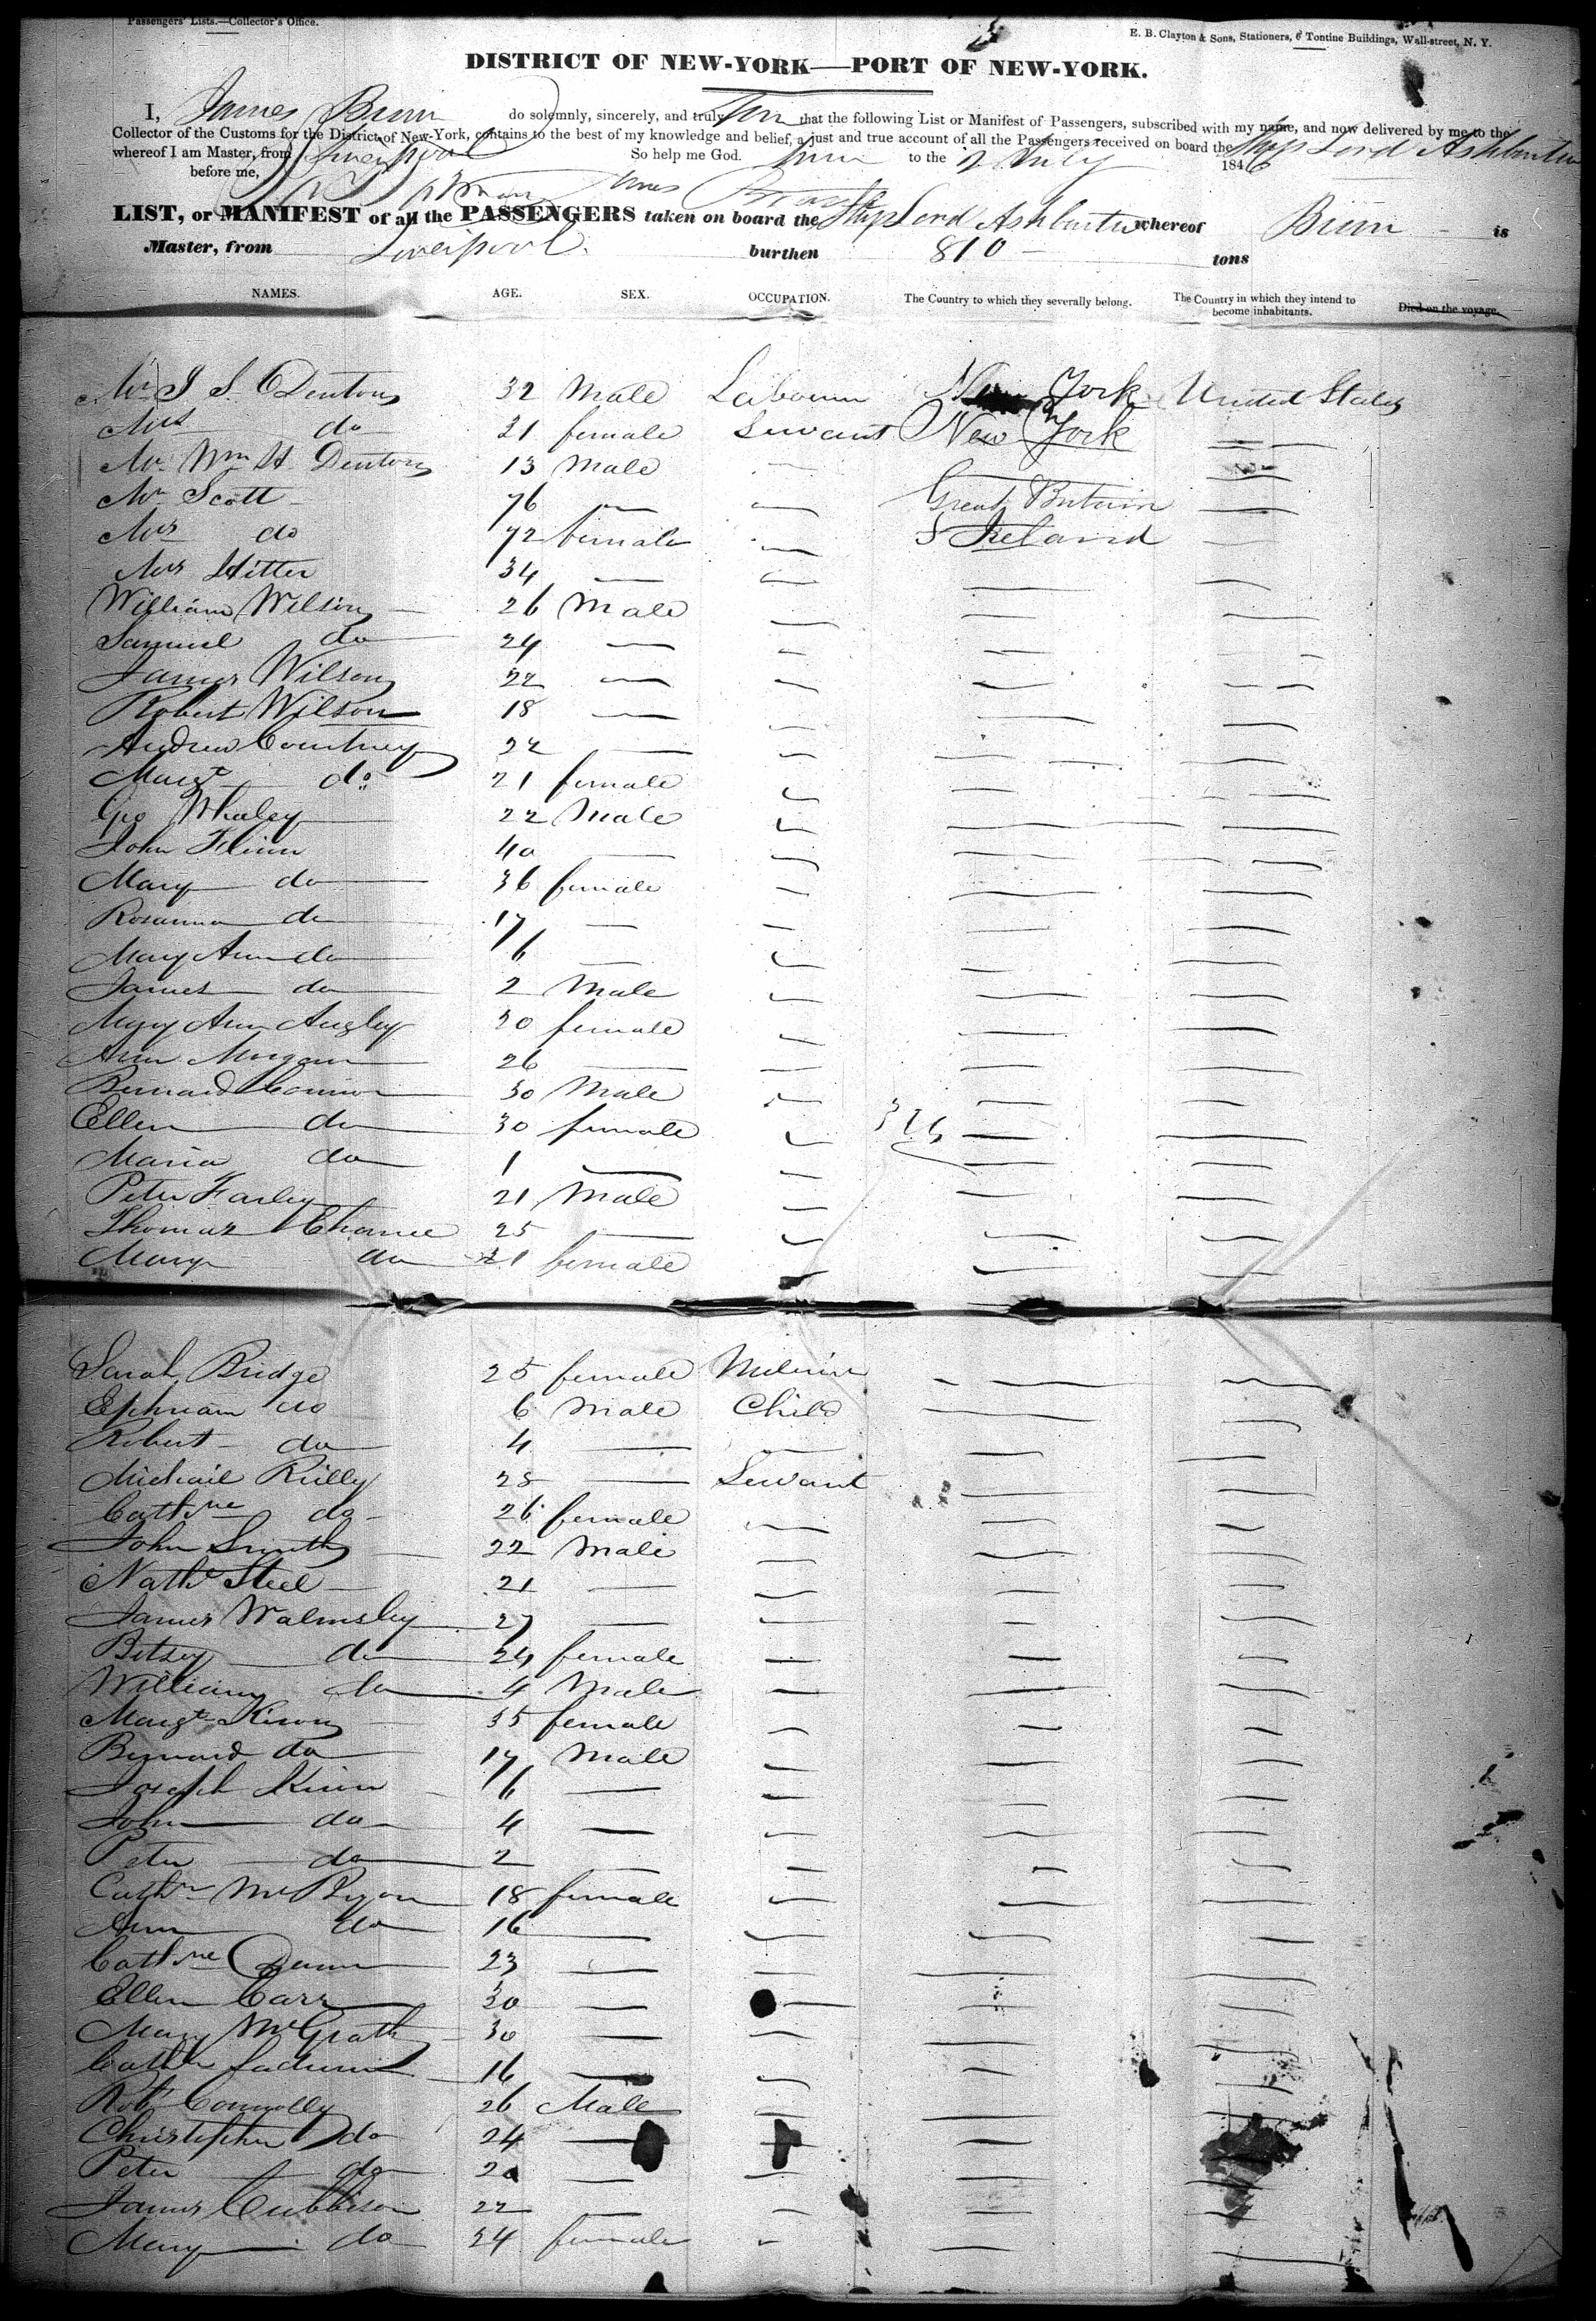 Passengers' Lists.—Collector's Office.
E. B. Clayton & Sons, Stationers, 6 Tontine Buildings, Wall-street, N. Y.
DISTRICT OF NEW-YORK—PORT OF NEW-YORK.
I, James do solemnly, sincerely, and truly that the following List or Manifest of Passengers, subscribed with my name, and now delivered by me to the
Collector of the Customs for the District of New-York, contains to the best of my knowledge and belief, a just and true account of all the Passengers received on board the Ship Lord Ashburton
whereof I am Master, from Liverpool So help me God. to the 2 July 1846
before me,
LIST, or MANIFEST of all the PASSENGERS taken on board the Ship Lord Ashburton whereof is
Master, from Liverpool. burthen 810 tons
NAMES. AGE. SEX. OCCUPATION. The Country to which they severally belong. The Country in which they intend to become inhabitants. Died on the voyage.
Mr J S. Denton 32 Male Labourer New York United States
Mrs do 31 female Servant New York
Mr Wm H Denton 13 Male
Mr Scott 76 — Great Britain
Mrs do 72 female & Ireland
Mrs Hitter 34 —
William Wilson 26 Male
Samuel do 24 —
James Wilson 22 —
Robert Wilson 18 —
Andrew Courtney 22 —
Margt do 21 female
Geo Whaley 22 Male
John Flinn 40 —
Mary do 36 female
Rosanna do 17 —
Mary Ann do 6 —
James do 2 Male
Mary Ann 20 female
Ann Morgan 26 —
Bernard Connor 30 Male
Ellen do 30 female
Maria do 1 —
Peter Farley 21 Male
Thomas Chance 25 —
Mary do 21 female
Sarah Bridge 25 female
Ephraim do 6 Male Child
Robert do 4 —
Michail Reilly 28 — Servant
Cathne do 26 female
John Smith 22 Male
Nathl Steel 21 —
James Walmsley 27 —
Betsey do 24 female
William do 4 Male
Margt 35 female
Bernard do 17 Male
Joseph 6 —
John do 4 —
Peter do 2 —
18 female
Ann do 16 —
Cathne 23 —
Ellen Carr 30 —
Mary McGrath 30 —
16 —
Robt Connolly 26 Male
Christopher do 24 —
Peter do 20 —
James Cubbison 22 —
Mary do 24 female